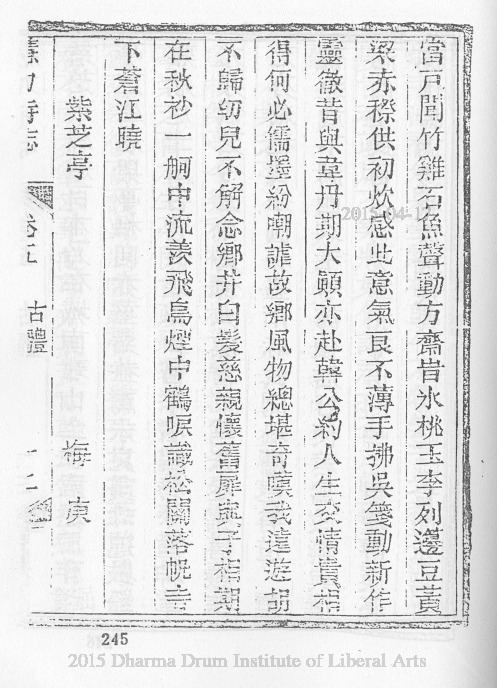 當戸聞竹雞石魚聲動方齋旹氷桃玉李列邊豆黃
粱赤穄供初炊感此意氣良不薄手拂吳箋動新作
靈徹昔與韋丹期大顚亦赴韓公約人生交情貴相
得何必儒墨紛嘲謔故鄉風物總堪奇嘆我遠遊胡
不歸幼兒不解念鄉井白髮慈親懷舊扉與子相期
在秋杪一舸中流羨飛鳥煙中鶴唳識松關落帆寺
下蒼江曉
紫芝亭 梅庚
慧力寺志 卷五 古體
245
2015 Dharma Drum Institute of Liberal Arts